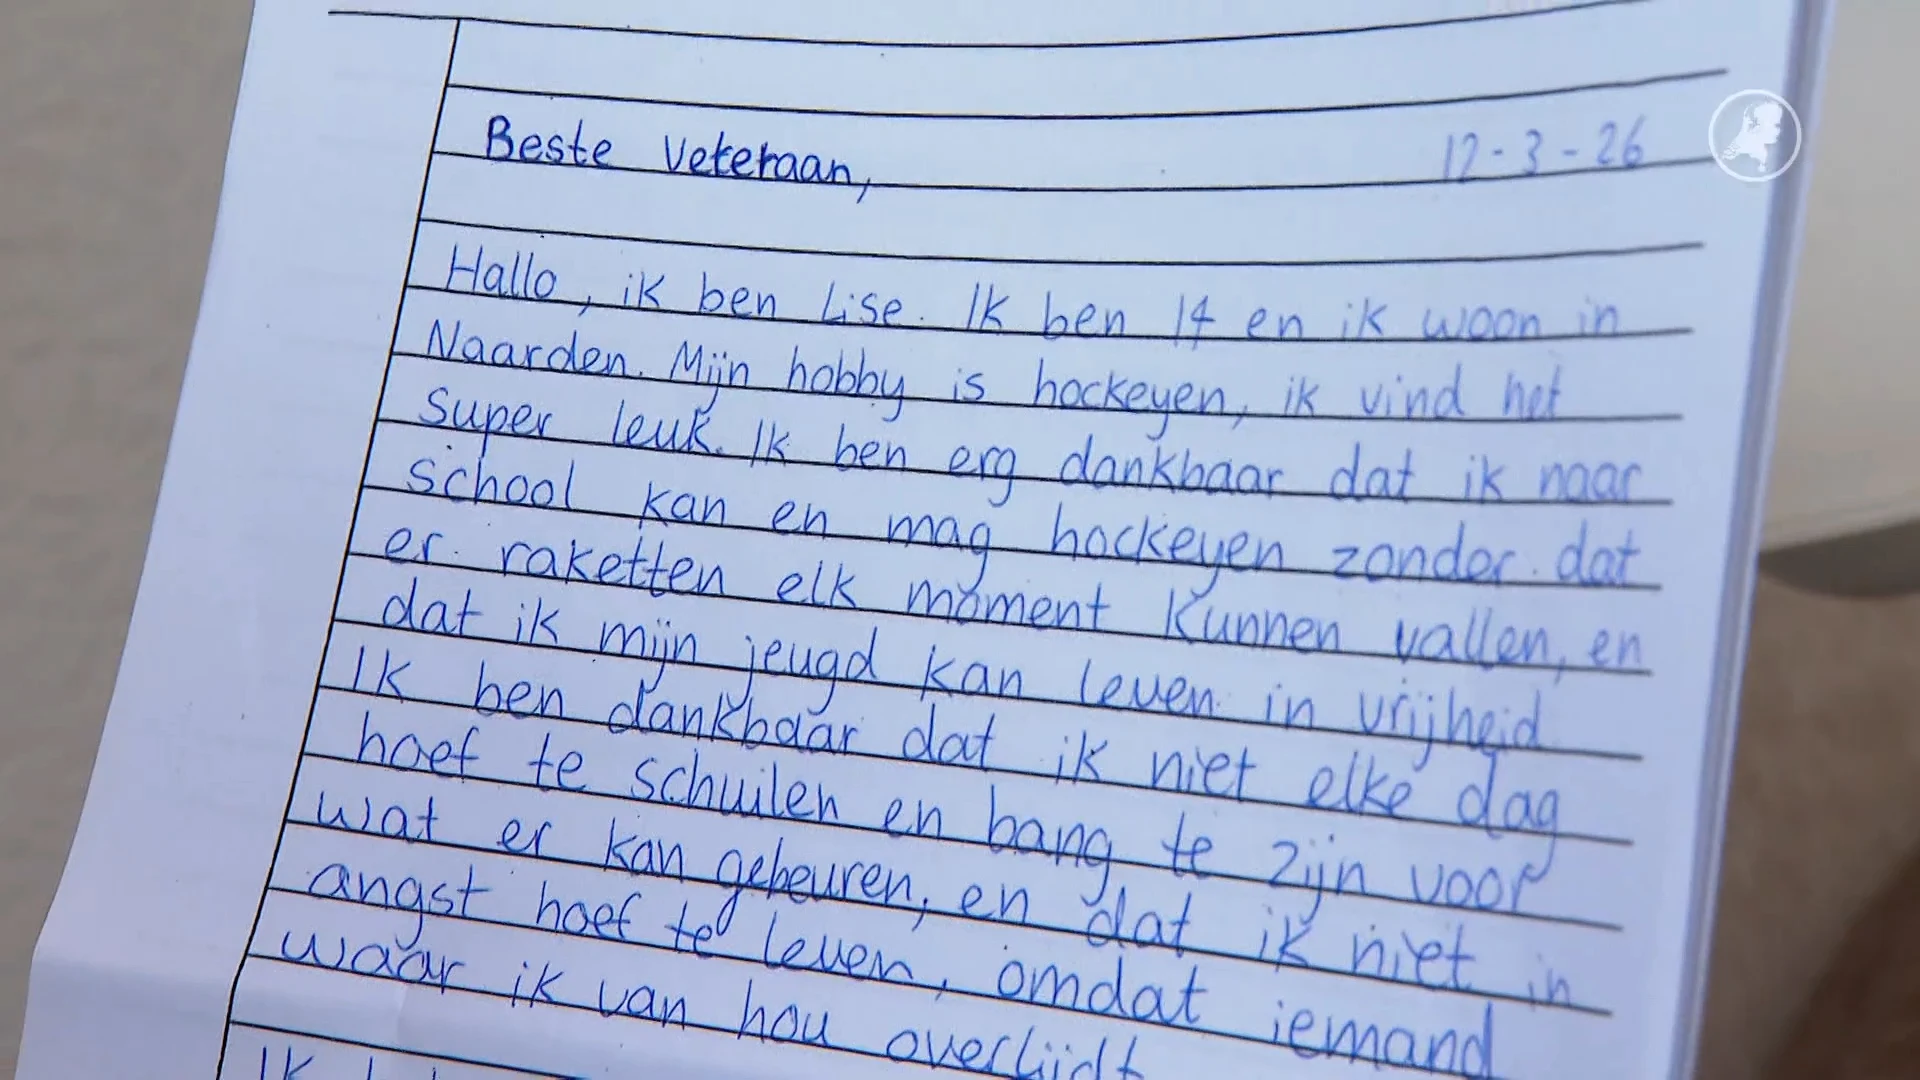 Beste veteraan,
12-3-26
Hallo, ik ben Lise. Ik ben 14 en ik woon in
Naarden. Mijn hobby is hockeyen, ik vind het
super leuk. Ik ben erg dankbaar dat ik naar
school kan en mag hockeyen zonder dat
er raketten elk moment kunnen vallen, en
dat ik mijn jeugd kan leven in vrijheid
Ik ben dankbaar dat ik niet elke dag
hoef te schuilen en bang te zijn voor
wat er kan gebeuren, en dat ik niet in
angst hoef te leven, omdat iemand
waar ik van hou overlijdt
Ik